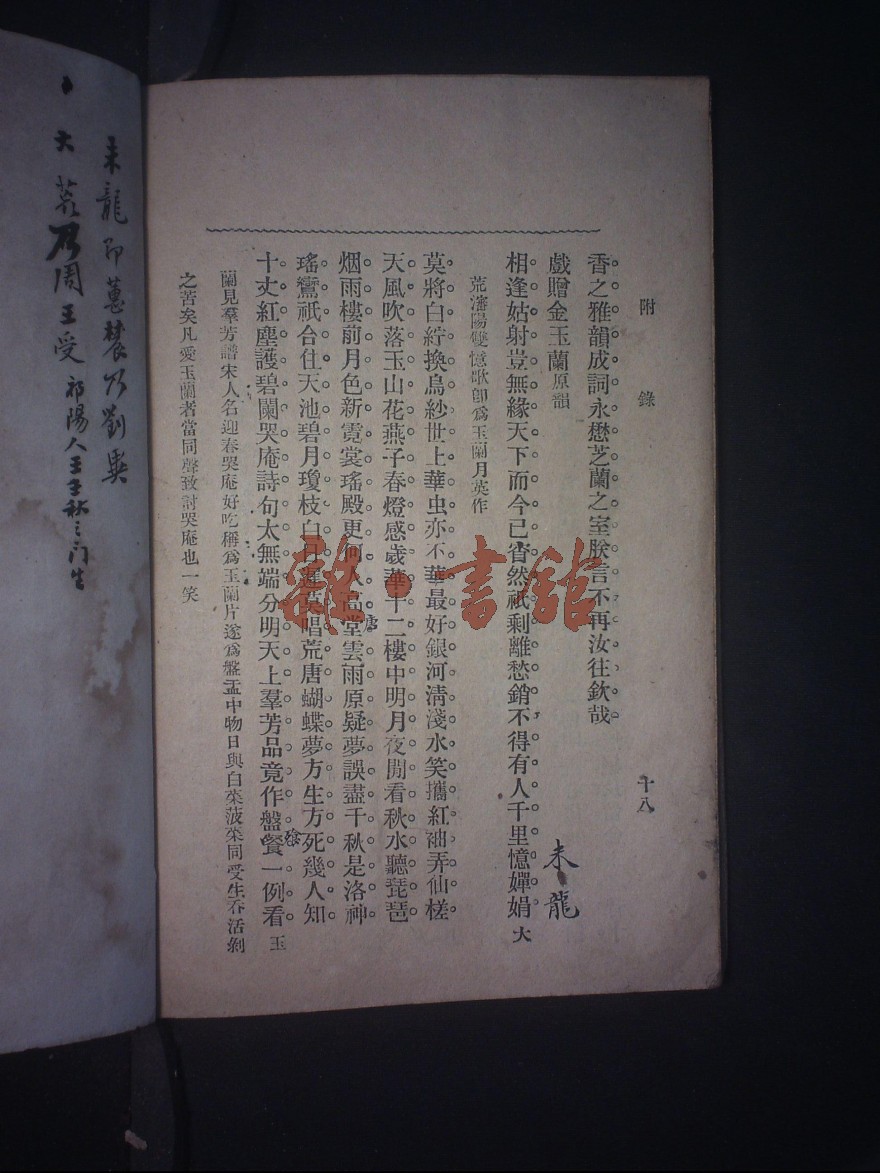 附錄
十八
香之雅韻成詞永懋芝蘭之室朕言不再汝往欽哉
戲贈金玉蘭原韻
未龍
相逢姑射豈無緣天下而今已窅然祇剩離愁銷不得有人千里憶嬋娟大
荒瀋陽雙憶歌卽爲玉蘭月英作
莫將白紵換烏紗世上華虫亦不華最好銀河清淺水笑攜紅袖弄仙槎
天風吹落玉山花燕子春燈感歲華十二樓中明月夜閒看秋水聽琵琶
烟雨樓前月色新霓裳瑤殿更何人高堂雲雨原疑夢誤盡千秋是洛神
瑤鸞祇合住天池碧月瓊枝白日遲莫唱荒唐蝴蝶夢方生方死幾人知
十丈紅塵護碧闌哭庵詩句太無端分明天上羣芳品竟作盤餐一例看玉
蘭見羣芳譜宋人名迎春哭庵好吃稱爲玉蘭片遂爲盤盂中物日與白菜菠菜同受生吞活剝
之苦矣凡愛玉蘭者當同聲致討哭庵也一笑
雜·書館
未龍即蕙農乃劉異
大荒乃周王受祁陽人王壬秋之门生